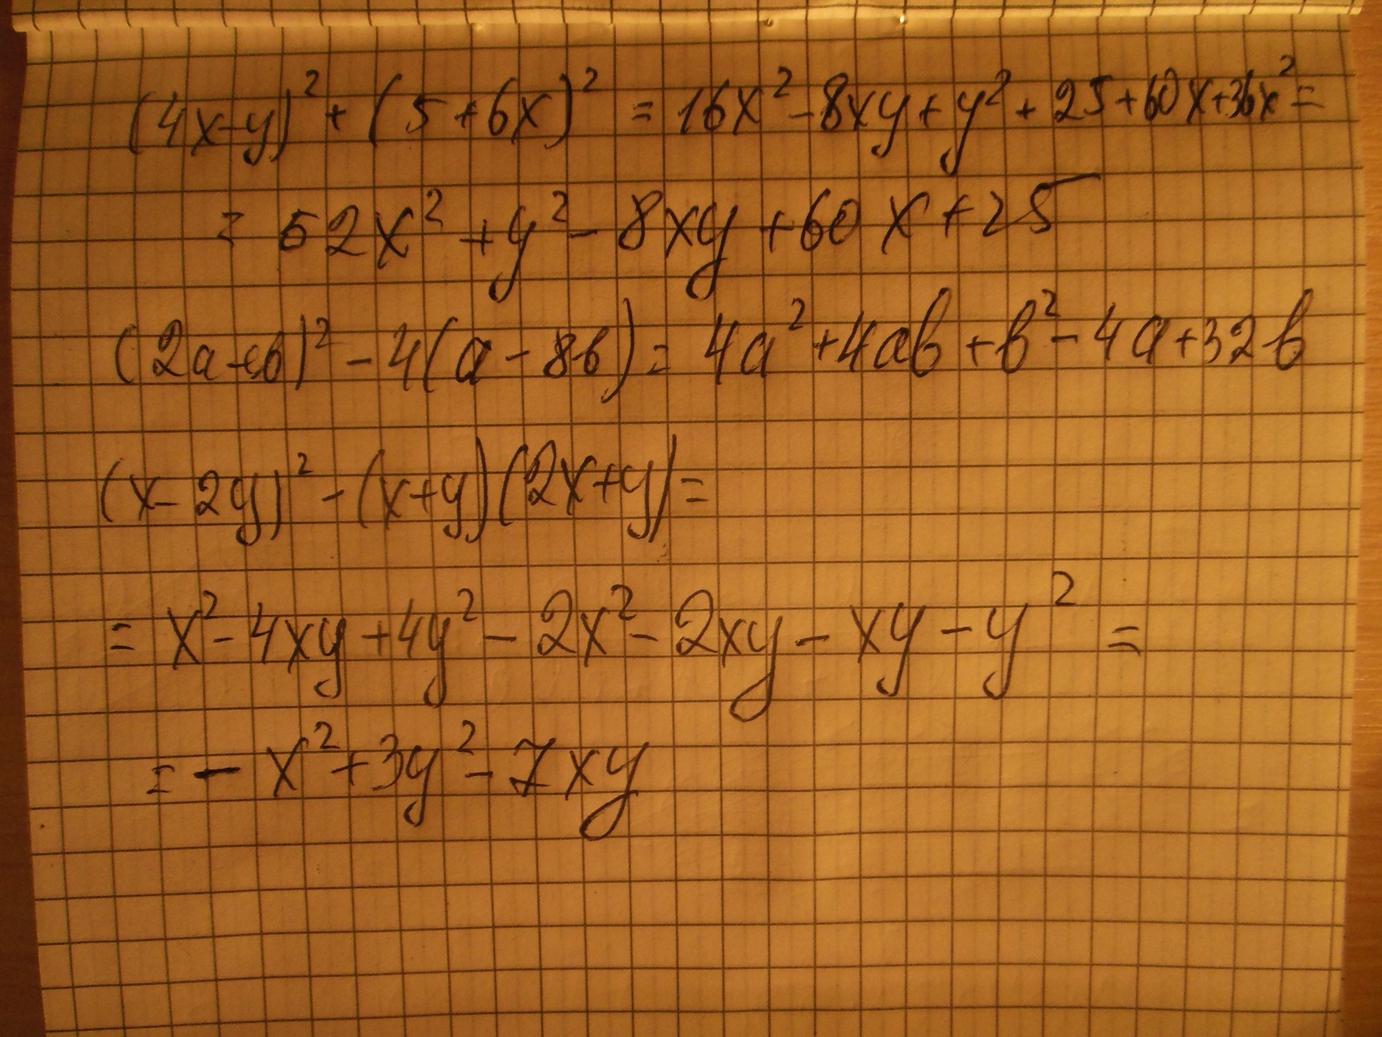 (4x-y)² + (5+6x)² = 16x² - 8xy + y² + 25 + 60x + 36x² =
= 52x² + y² - 8xy + 60x + 25
(2a+b)² - 4(a - 8b) = 4a² + 4ab + b² - 4a + 32b
(x - 2y)² - (x+y)(2x+y) =
= x² - 4xy + 4y² - 2x² - 2xy - xy - y² =
= - x² + 3y² - 7xy